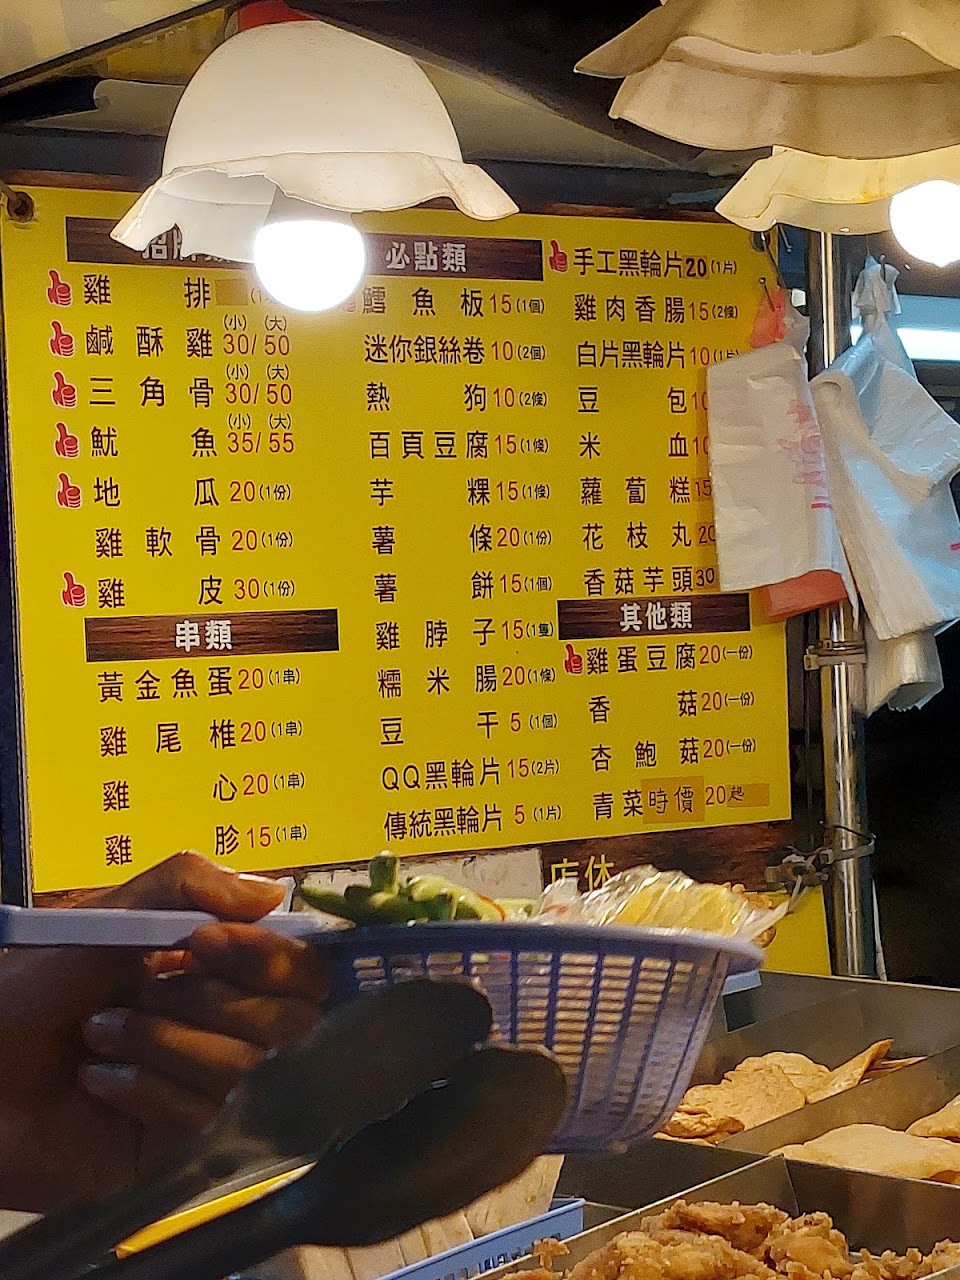 招牌類
雞排
(小) (大)
鹹酥雞 30/50
(小) (大)
三角骨 30/50
(小) (大)
魷魚 35/55
地瓜 20(1份)
雞軟骨 20(1份)
雞皮 30(1份)
串類
黃金魚蛋 20(1串)
雞尾椎 20(1串)
雞心 20(1串)
雞胗 15(1串)
必點類
鱈魚板 15(1個)
迷你銀絲卷 10(2個)
熱狗 10(2條)
百頁豆腐 15(1條)
芋粿 15(1條)
薯條 20(1份)
薯餅 15(1個)
雞脖子 15(1隻)
糯米腸 20(1條)
豆干 5(1個)
QQ黑輪片 15(2片)
傳統黑輪片 5(1片)
手工黑輪片 20(1片)
雞肉香腸 15(2條)
白片黑輪片 10(1片)
豆包 10
米血 10
蘿蔔糕 15
花枝丸 20
香菇芋頭 30
其他類
雞蛋豆腐 20(一份)
香菇 20(一份)
杏鮑菇 20(一份)
青菜時價 20起
店休